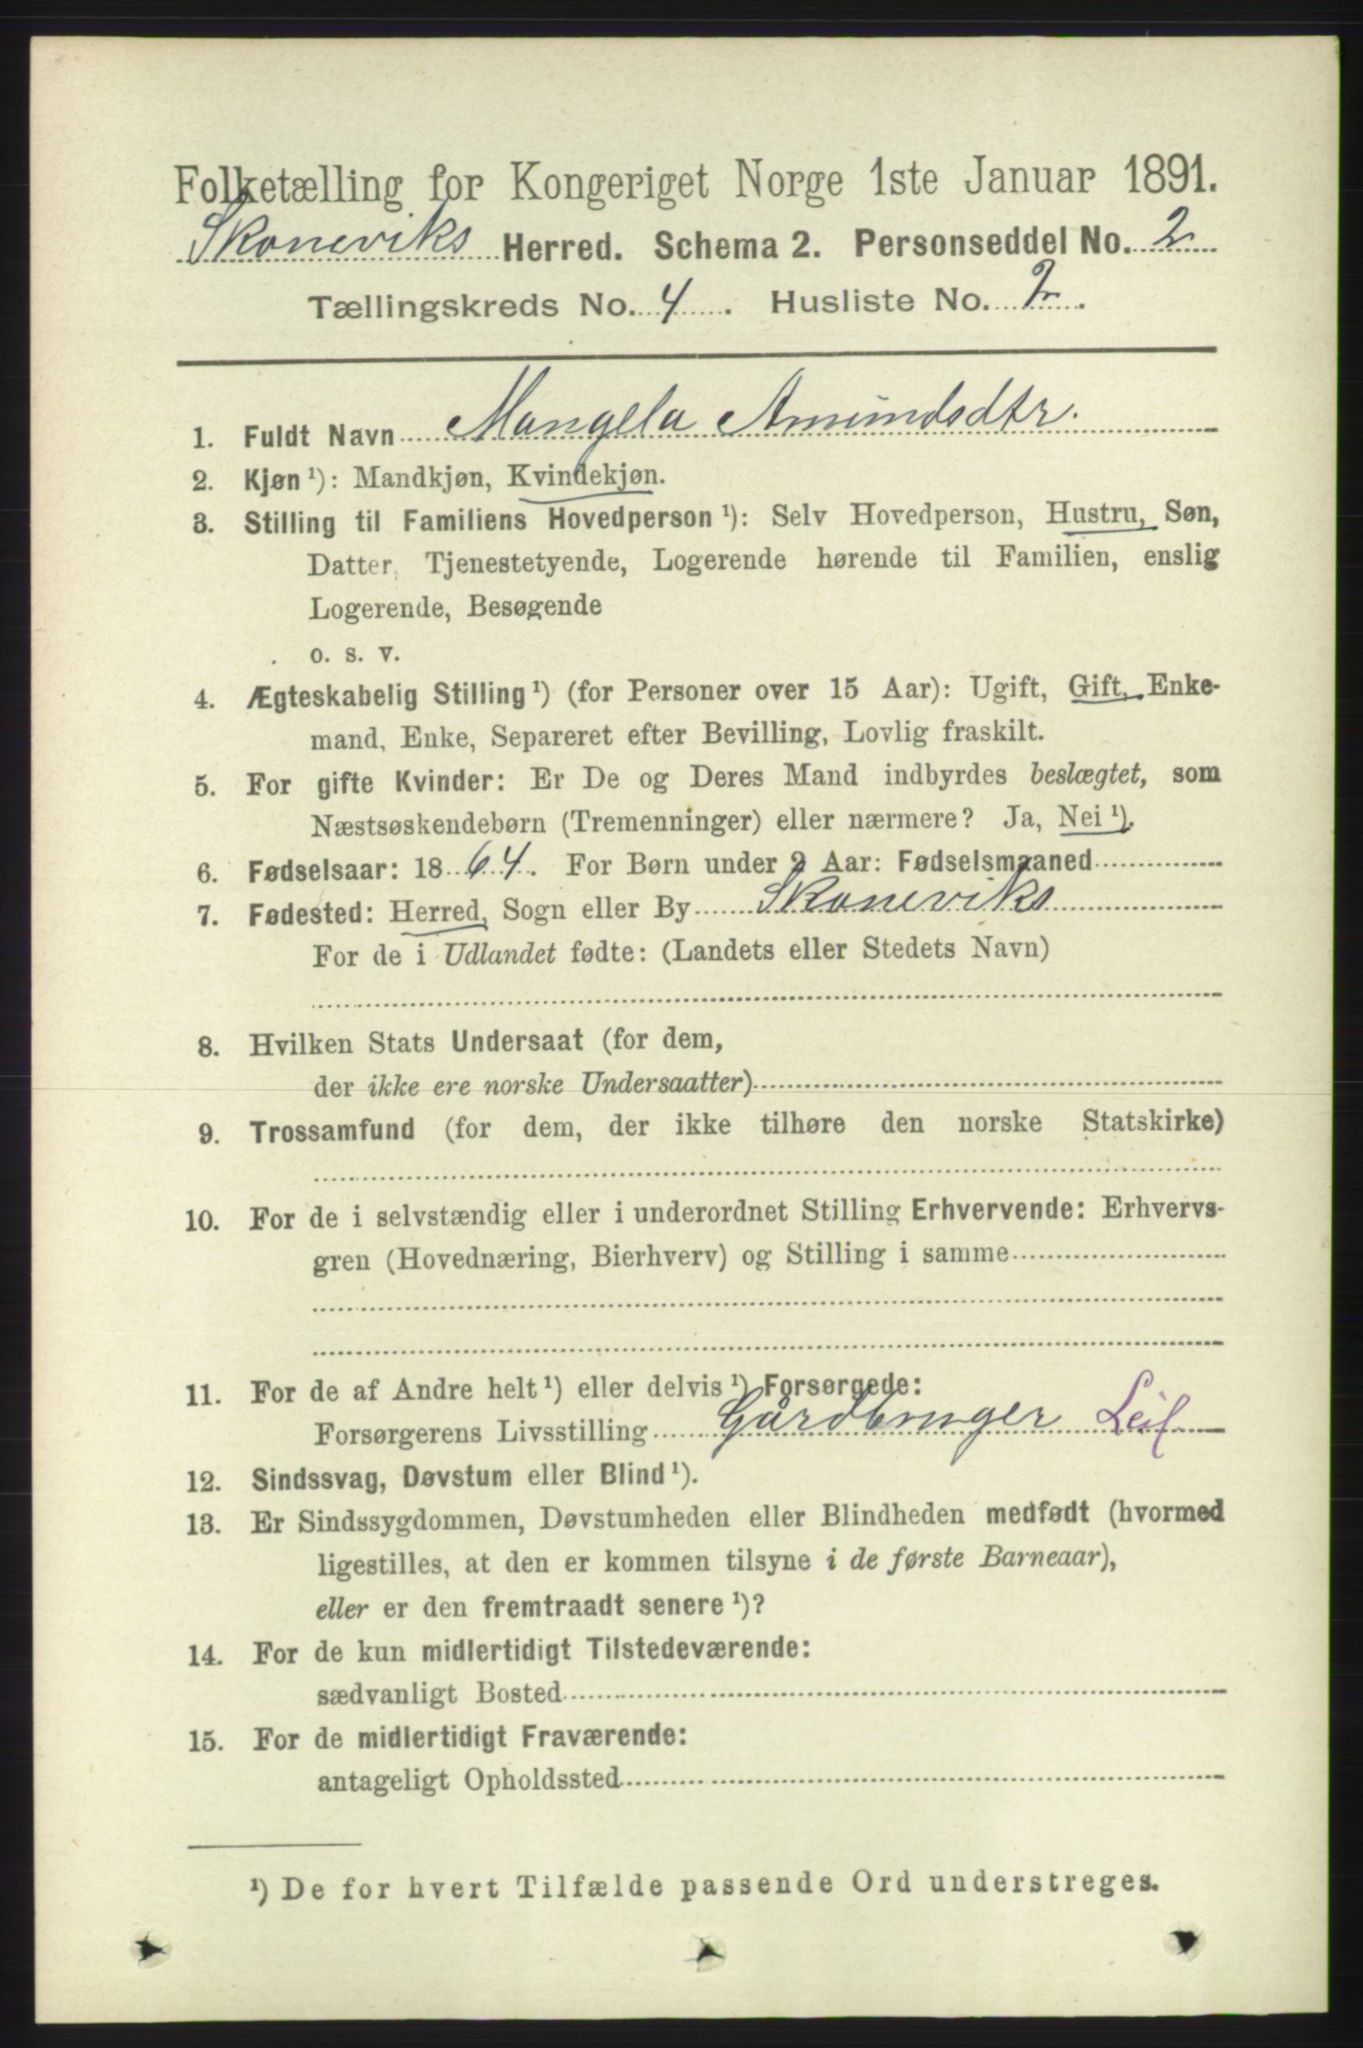 Folketælling for Kongeriget Norge 1ste Januar 1891.
Skoneviks Herred. Schema 2. Personseddel No. 2
Tællingskreds No. 4. Husliste No. 2.
1. Fuldt Navn Mangela Amundsdtr.
2. Kjøn¹): Mandkjøn, Kvindekjøn.
3. Stilling til Familiens Hovedperson¹): Selv Hovedperson, Hustru, Søn,
Datter, Tjenestetyende, Logerende hørende til Familien, enslig
Logerende, Besøgende
o. s. v.
4. Ægteskabelig Stilling¹) (for Personer over 15 Aar): Ugift, Gift, Enke-
mand, Enke, Separeret efter Bevilling, Lovlig fraskilt.
5. For gifte Kvinder: Er De og Deres Mand indbyrdes beslægtet, som
Næstsøskendebørn (Tremenninger) eller nærmere? Ja, Nei¹).
6. Fødselsaar: 1864. For Børn under 2 Aar: Fødselsmaaned
7. Fødested: Herred, Sogn eller By Skoneviks
For de i Udlandet fødte: (Landets eller Stedets Navn)
8. Hvilken Stats Undersaat (for dem,
der ikke ere norske Undersaatter)
9. Trossamfund (for dem, der ikke tilhøre den norske Statskirke)
10. For de i selvstændig eller i underordnet Stilling Erhvervende: Erhvervs-
gren (Hovednæring, Bierhverv) og Stilling i samme
11. For de af Andre helt¹) eller delvis¹) Forsørgede:
Forsørgerens Livsstilling Gårdbruger Leil
12. Sindssvag, Døvstum eller Blind¹).
13. Er Sindssygdommen, Døvstumheden eller Blindheden medfødt (hvormed
ligestilles, at den er kommen tilsyne i de første Barneaar),
eller er den fremtraadt senere¹)?
14. For de kun midlertidigt Tilstedeværende:
sædvanligt Bosted
15. For de midlertidigt Fraværende:
antageligt Opholdssted
¹) De for hvert Tilfælde passende Ord understreges.